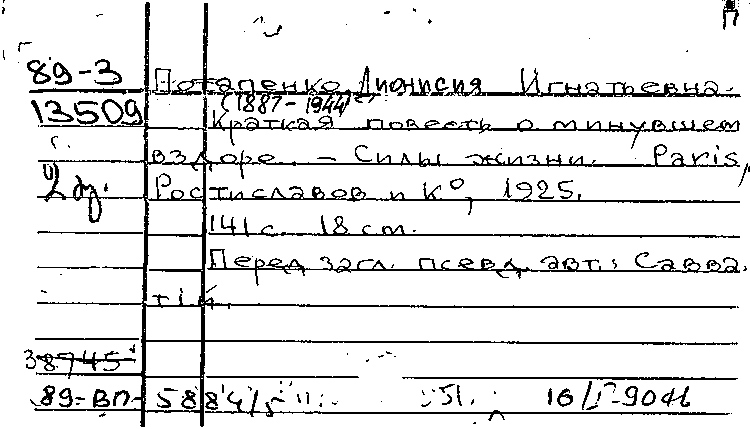 П
89-3 Потапенко, Дионисия Игнатьевна.
13509 (1887-1944)
Краткая повесть о минувшем
вздоре. - Силы жизни. Paris,
2 Ростиславов и К°, 1925.
141 с. 18 cm.
Перед загл. псевд. авт.: Савва-
тiй.
38745
89-ВП- 5884/5 51. 16/I-90